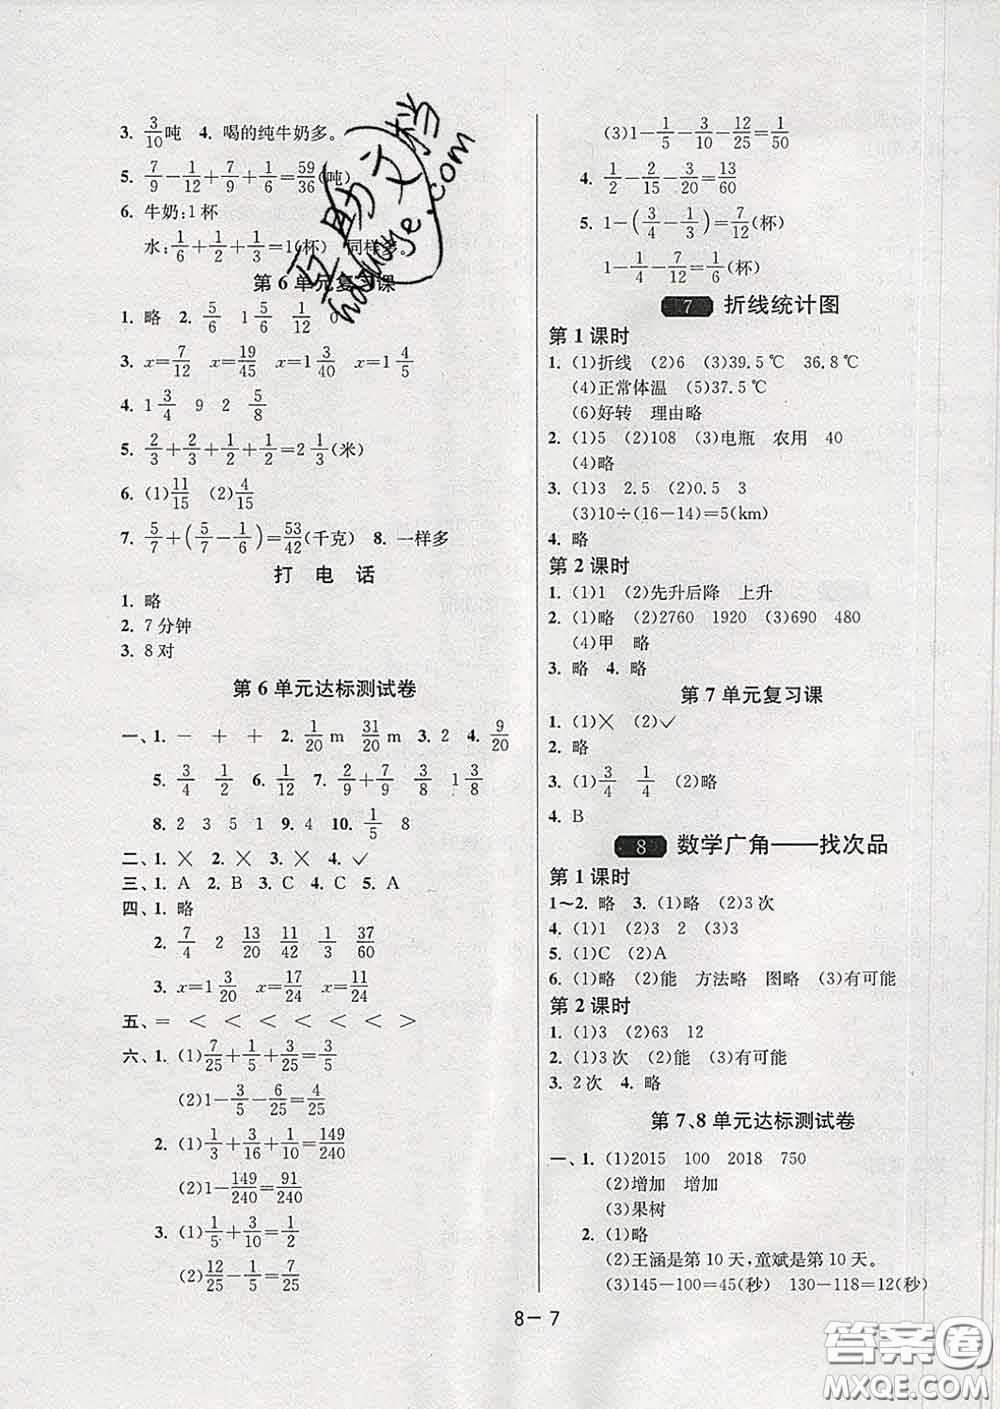 3. 3/10吨 4. 喝的纯牛奶多。
5. 7/9-1/12+7/9+1/6=59/36(吨)
6. 牛奶:1杯
水:1/6+1/2+1/3=1(杯) 同样多。
第6单元复习课
1. 略 2. 5/6 1 5/6 1/12 0
3. x=7/12 x=19/45 x=1 3/40 x=1 4/5
4. 1 3/4 9 2 5/8
5. 2/3+2/3+1/2+1/2=2 1/3(米)
6. (1)11/15 (2)4/15
7. 5/7+(5/7-1/6)=53/42(千克) 8. 一样多
打 电 话
1. 略
2. 7分钟
3. 8对
第6单元达标测试卷
一、1. - + + 2. 1/20 m 31/20 m 3. 2 4. 9/20
5. 3/4 1/2 6. 1/12 7. 2/9+7/9 3/8 1 3/8
8. 2 3 5 1 9. 4 10. 1/5 8
二、1. ✕ 2. ✕ 3. ✕ 4. ✓
三、1. A 2. B 3. C 4. C 5. A
四、1. 略
2. 7/4 2 13/20 11/42 1/3 37/60
3. x=1 3/20 x=17/24 x=11/24
五、= < < < < < >
六、1. (1)7/25+1/5+3/25=3/5
(2)1-3/5-6/25=4/25
2. (1)1/3+3/16+1/10=149/240
(2)1-149/240=91/240
3. (1)1/5+3/10=1/2
(2)12/25-1/5=7/25
(3)1-1/5-3/10-12/25=1/50
4. 1/2-2/15-3/20=13/60
5. 1-(3/4-1/3)=7/12(杯)
1-1/4-7/12=1/6(杯)
7 折线统计图
第1课时
1. (1)折线 (2)6 (3)39.5℃ 36.8℃
(4)正常体温 (5)37.5℃
(6)好转 理由略
2. (1)5 (2)108 (3)电瓶 农用 40
(4)略
3. (1)3 2.5 (2)0.5 3
(3)10÷(16-14)=5(km)
4. 略
第2课时
1. (1)1 (2)先升后降 上升
2. (1)略 (2)2760 1920 (3)690 480
(4)甲 略
3. 略 4. 略
第7单元复习课
1. (1)✕ (2)✓
2. 略
3. (1)3/4 1/4 (2)略
4. B
8 数学广角——找次品
第1课时
1~2. 略 3. (1)略 (2)3次
4. (1)1 (2)3 2 (3)3
5. (1)C (2)A
6. (1)略 (2)能 方法略 图略 (3)有可能
第2课时
1. (1)3 (2)63 12
2. (1)3次 (2)能 (3)有可能
3. 2次 4. 略
第7、8单元达标测试卷
一、1. (1)2015 100 2018 750
(2)增加 增加
(3)果树
2. (1)略
(2)王涵是第10天,童斌是第10天。
(3)145-100=45(秒) 130-118=12(秒)
8-7
答案圈
MXQE.COM